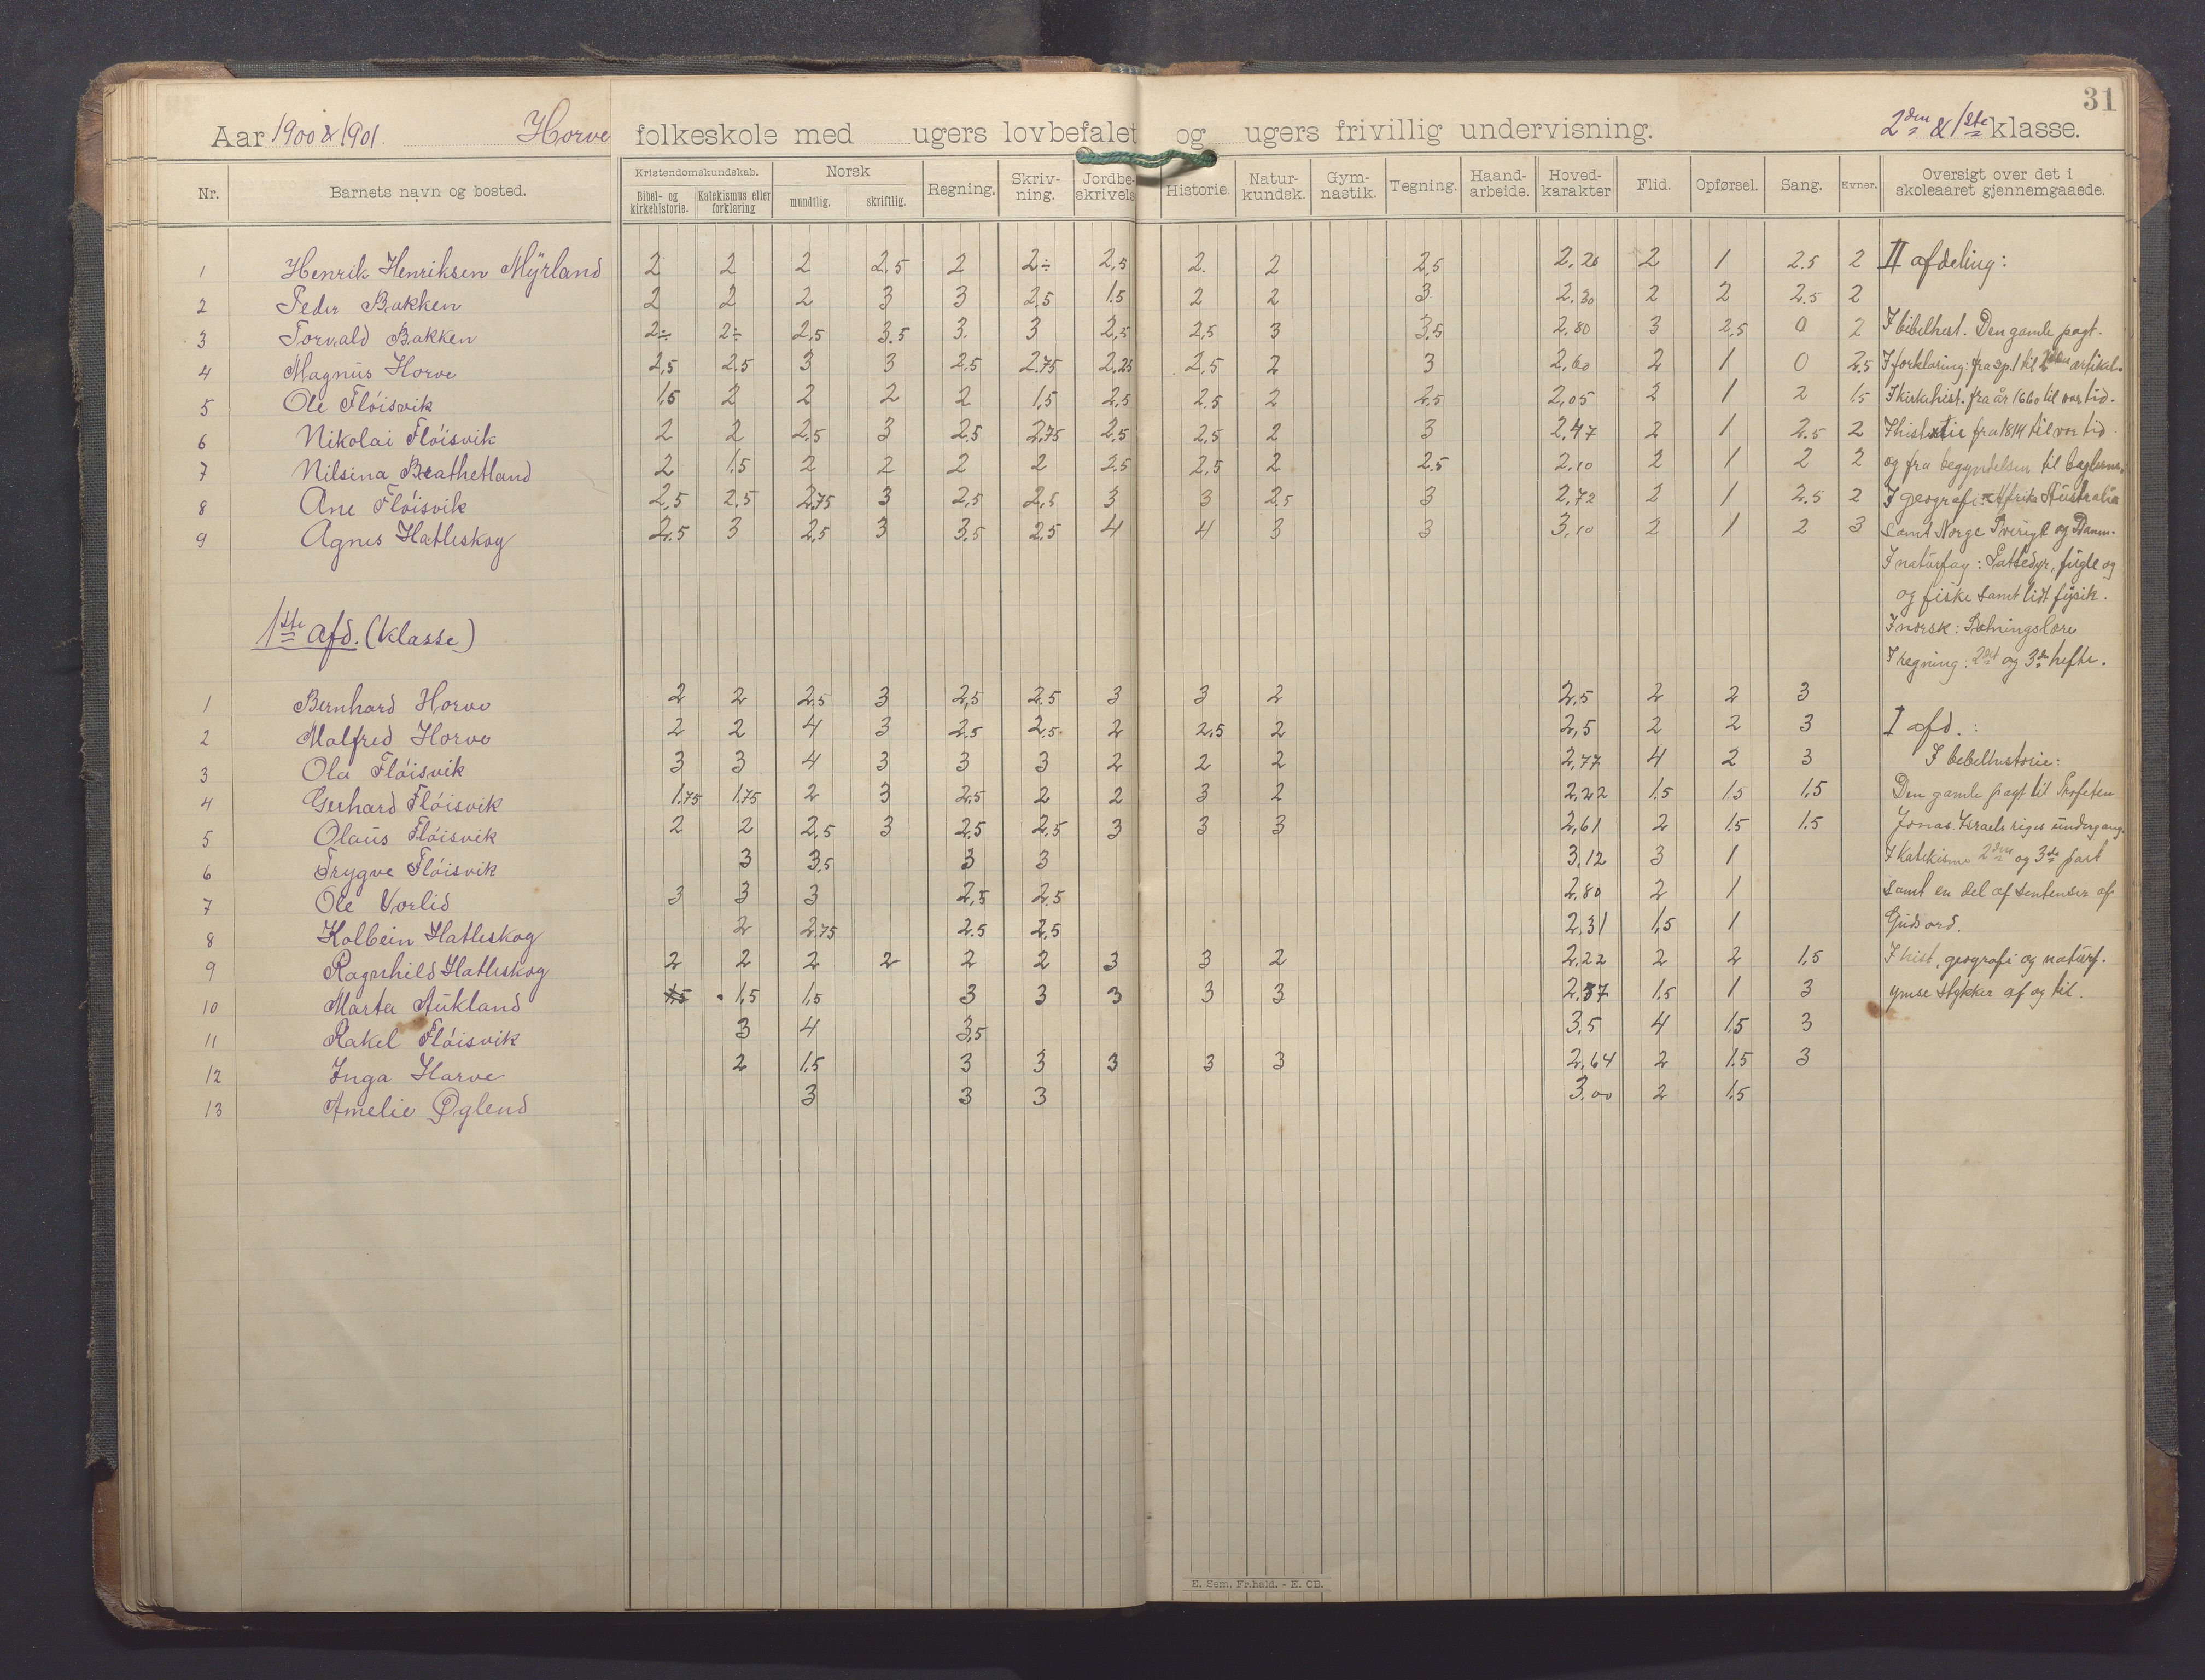 31
Aar 1900 & 1901. Horve folkeskole med ugers lovbefalet og ugers frivillig undervisning. 2den & 1ste klasse.
Nr. Barnets navn og bosted. Kristendomskundskab. Bibel- og kirkehistorie. Katekismus eller forklaring Norsk mundtlig. skriftlig. Regning. Skriv-ning. Jordbe-skrivels Historie. Natur-kundsk. Gym-nastik. Tegning. Haand-arbeide. Hoved-karakter Flid. Opførsel. Sang. Evner. Oversigt over det i skoleaaret gjennemgaaede.
1 Henrik Henriksen Myrland 2 2 2 2,5 2 2÷ 2,5 2 2 2,5 2,20 2 1 2.5 2 II afdeling:
2 Peder Bakken 2 2 2 3 3 2,5 1.5 2 2 3 2.30 2 2 2.5 2
3 Torvald Bakken 2÷ 2÷ 2,5 3.5 3. 3 2,5 2,5 3 3,5 2,80 3 2,5 0 2 I bibelhist. Den gamle pagt.
4 Magnus Horve 2,5 2.5 3 3 2,5 2.75 2,25 2,5 2 3 2,60 2 1 0 2,5 I forklaring: fra sp. 1 til 2den artikel.
5 Ole Fløisvik 1,5 2 2 2 2 1,5 2,5 2.5 2 2,5 2,05 2 1 2 1.5 I kirkehist. fra år 1660 til vor tid.
6 Nikolai Fløisvik 2 2 2,5 3 2,5 2,75 2,5 2,5 2 3 2,47 2 1 2.5 2 I historie fra 1814 til vor tid
7 Nilsina Brathetland 2 1.5 2 2 2 2 2,5 2,5 2 2.5 2,10 2 1 2 2 og fra begyndelsen til baglerne.
8 Ane Fløisvik 2,5 2.5 2,75 3 2,5 2,5 3 3 2,5 3 2,72 2 1 2.5 2 I geografi: Afrika Australia
9 Agnes Hatleskog 2.5 3 2,5 3 3,5 2,5 4 4 3 3 3,10 2 1 2 3 samt Norge Sverige og Danm.
I naturfag: Pattedyr, fugle og
og fiske samt lidt fysik.
1ste afd. (klasse)
I norsk: Sætningslære
I regning: 2det og 3de hefte.
1 Bernhard Horve 2 2 2,5 3 2,5 2.5 3 3 2 2,5 2 2 3
2 Malfred Horve 2 2 4 3 2.5 2,5 2 2,5 2 2,5 2 2 3 I afd.:
3 Ola Fløisvik 3 3 4 3 3 3 2 2 2 2,77 4 2 3 I bebelhistorie:
4 Gerhard Fløisvik 1.75 1.75 2 3 2,5 2 2 3 2 2,22 1.5 1.5 1,5 Den gamle pagt til Profeten
5 Olaus Fløisvik 2 2 2,5 3 2.5 2.5 3 3 3 2,61 2 1.5 1.5 Jonas. Israels riges undergang.
6 Trygve Fløisvik 3 3,5 3 3 3.12 3 1 I Katekisme 2den og 3de part
7 Ole Vorlid 3 3 3 2,5 2.5 2,80 2 1 samt en del af sentenser af
8 Kolbein Hatleskog 2 2.75 2.5 2,5 2,31 1,5 1 Guds ord.
9 Ragnhild Hatleskog 2 2 2 2 2 2 3 3 2 2,22 2 2 1,5 I hist, geografi og naturf.
10 Marta Aukland 1,5 1,5 1,5 3 3 3 3 3 2.37 1.5 1 3 ymse stykker af og til.
11 Rakel Fløisvik 3 4 3,5 3,5 4 1.5 3
12 Inga Harve 2 1.5 3 3 3 3 3 2,64 2 1.5 3
13 Amelie Øglend 3 3 3 3.00 2 1.5
E. Sem, Fr.hald. - E. CB.